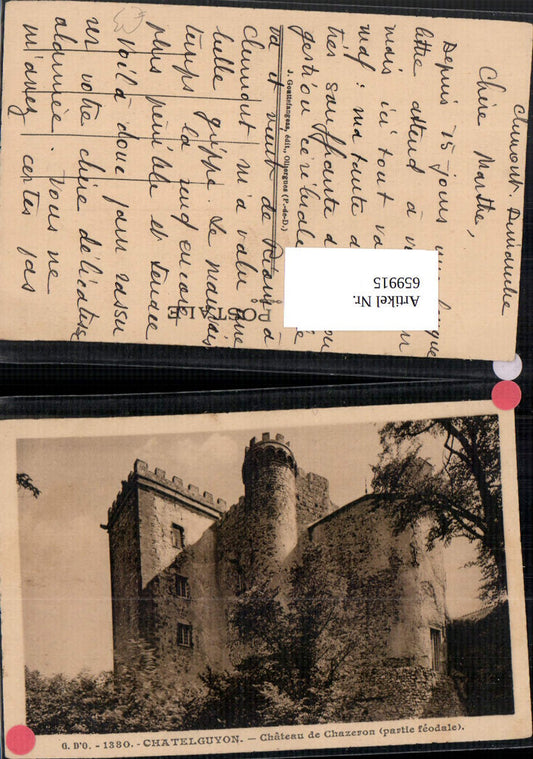 Clermont. Dimanche
Chère Marthe,
Depuis 15 jours une longue
lettre attend à v
mais ici tout va
mal : ma tante a
très souffrante d ou
gestion cérébrale
va et vient de Riom à
Clermont m'a valu une
belle grippe. Le mauvais
temps la rend encore
plus pénible et tenace
Voilà donc pour rassu
rer votre chère délicatesse
alarmée. Vous ne
m'avez certes pas
J. Gouttefangeas, édit., Olliergues (P.-de-D.)
POSTALE
Artikel Nr.
659915
G. D'O. - 1380. - CHATELGUYON. - Château de Chazeron (partie féodale).